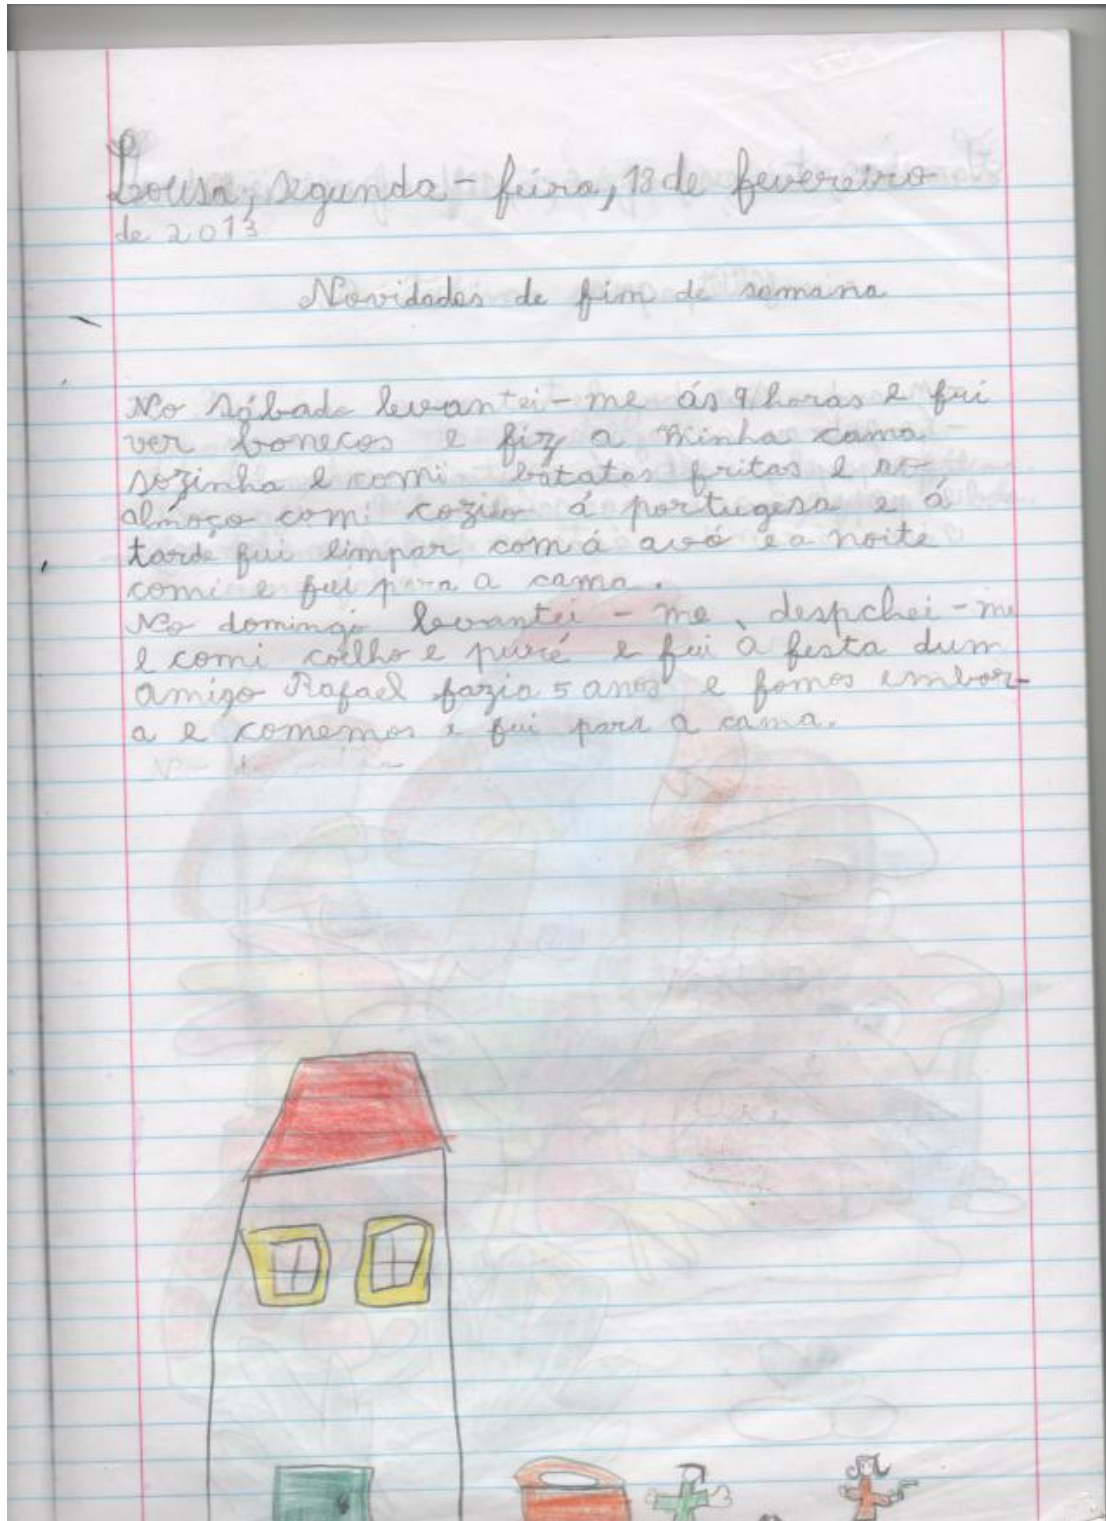 Lousa, segunda-feira, 18 de fevereiro
de 2013
Novidades de fim de semana
No sábado levantei-me ás 9 horas e fui
ver bonecos e fiz a minha cama
sozinha e comi batatas fritas e no
almoço comi cozido á portugesa e á
tarde fui limpar com á avó e a noite
comi e fui para a cama.
No domingo levantei-me, despchei-me
e comi coelho e puré e fui á festa dum
amigo Rafael fazia 5 anos e fomos embor-
a e comemos e fui para a cama.